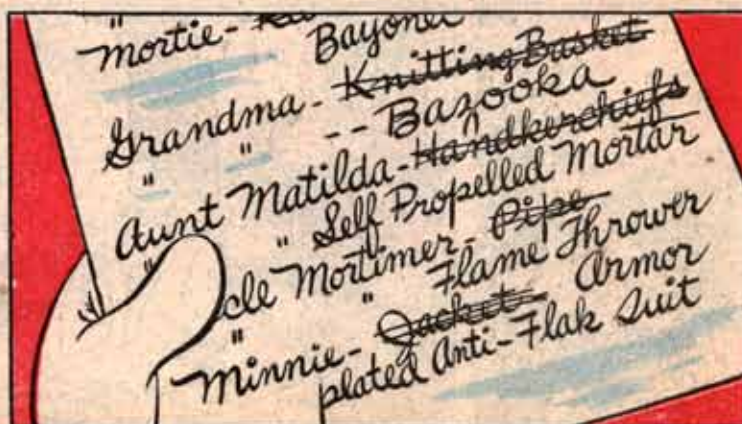 Mortie-
Bayonet
Grandma- Knitting Basket
" " -- Bazooka
Aunt Matilda- Handkerchiefs
" " Self Propelled Mortar
cle Mortimer- Pipe
" " Flame Thrower
Minnie- Jacket- Armor
plated Anti-Flak Suit